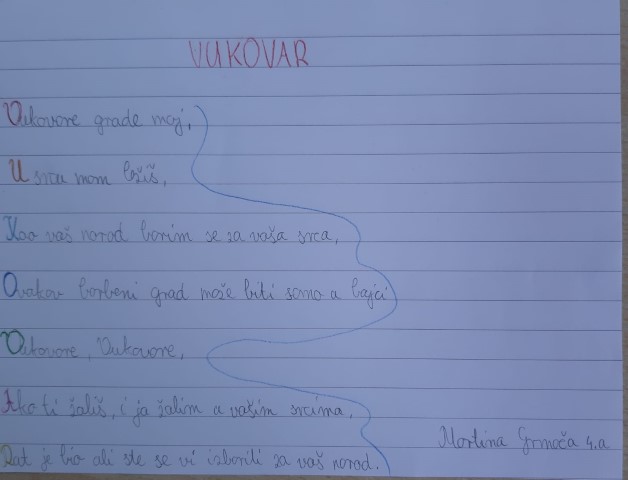 VUKOVAR
Vukovore grade moj,
U srcu mom ležiš,
Kao vaš narod borim se za vaša srca,
Ovakav borbeni grad može biti samo u bajci
Vukovore, Vukovore,
Ako ti žališ, i ja žalim u vašim srcima,
Rat je bio ali ste se vi izborili za vaš narod.
Martina Grmača 4.a